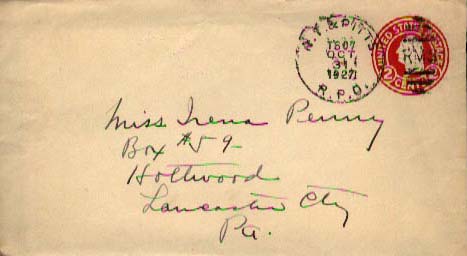 N.Y. & PITTS.
1807
OCT
31
1927
R.P.O.
UNITED STATES POSTAGE
2 CENTS 2
RMS
Miss Irena Penny
Box #59
Holtwood
Lancaster City
Pa.